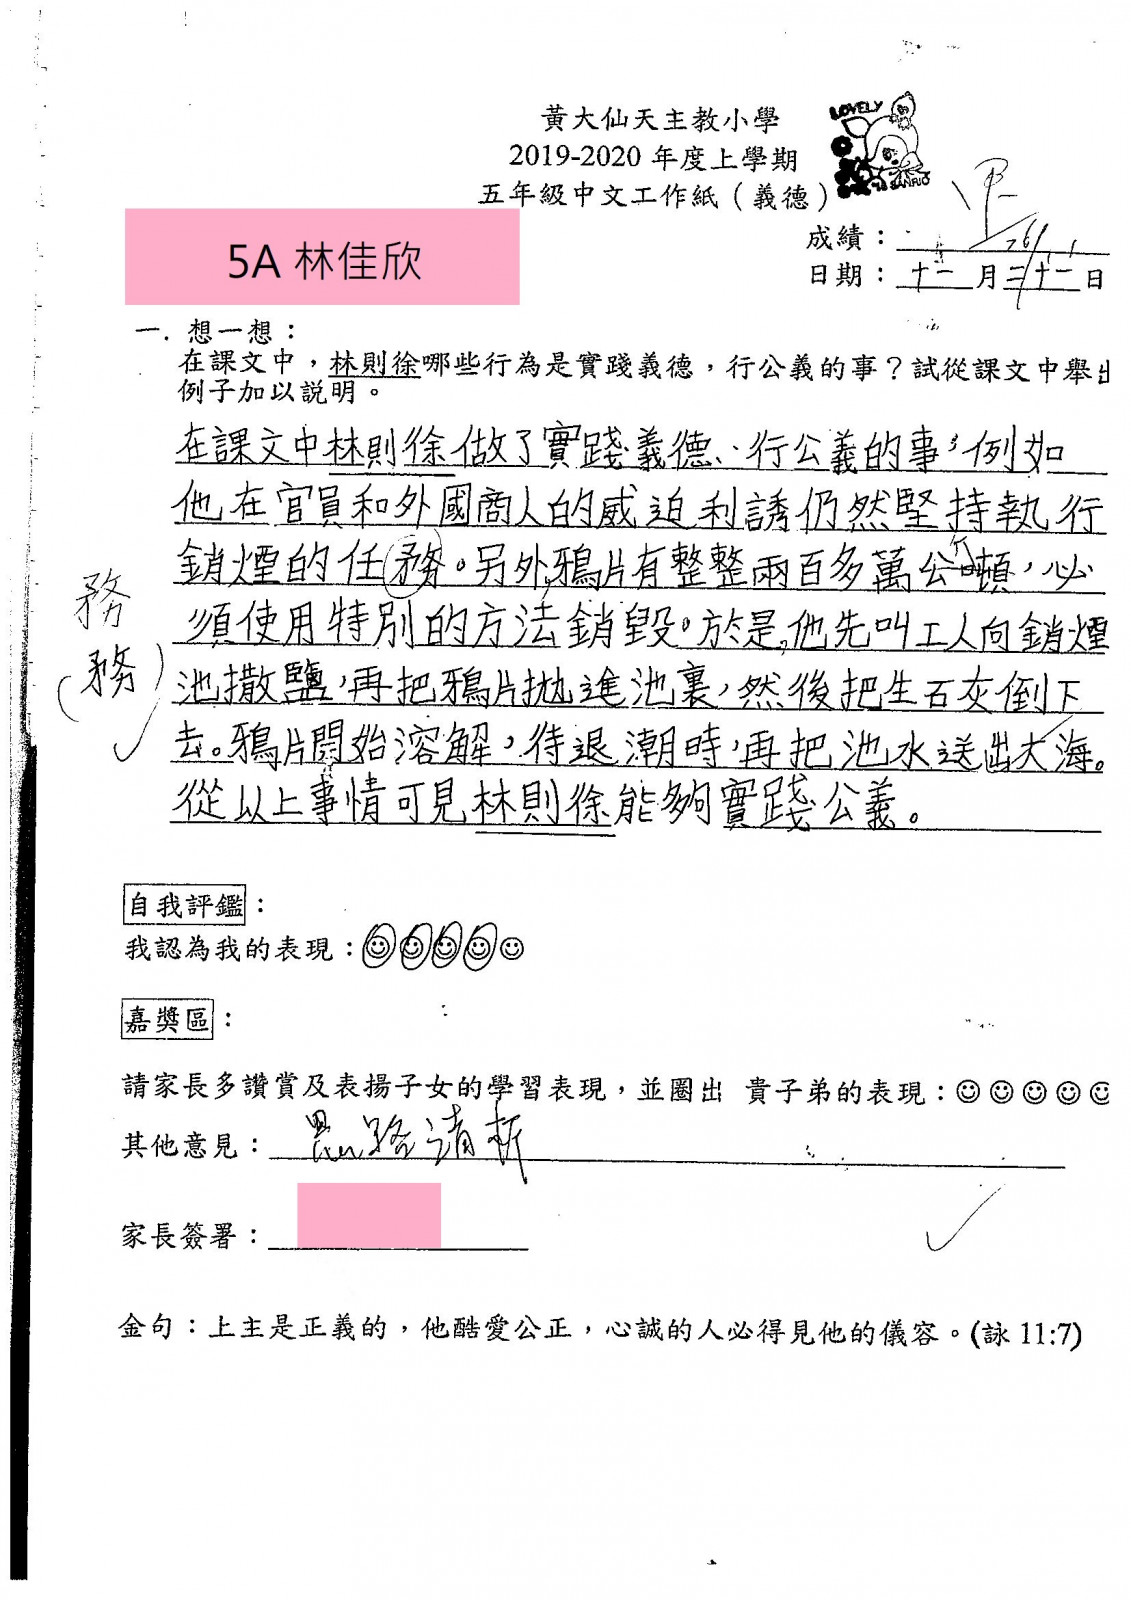 黃大仙天主教小學
2019-2020 年度上學期
五年級中文工作紙（義德）
LOVELY
SANRIO
5A 林佳欣
成績：
日期：十一月二十二日
一. 想一想：
在課文中，林則徐哪些行為是實踐義德，行公義的事？試從課文中舉出
例子加以說明。
在課文中林則徐做了實踐義德、行公義的事，例如
他在官員和外國商人的威迫利誘仍然堅持執行
銷煙的任務。另外，鴉片有整整兩百多萬公噸，必
須使用特別的方法銷毀。於是，他先叫工人向銷煙
池撒鹽，再把鴉片拋進池裏，然後把生石灰倒下
去。鴉片開始溶解，待退潮時，再把池水送出大海。
從以上事情可見林則徐能夠實踐公義。
務
（務）
自我評鑑：
我認為我的表現：☺☺☺☺☺
嘉獎區：
請家長多讚賞及表揚子女的學習表現，並圈出 貴子弟的表現：☺☺☺☺☺
其他意見：思路清晰
家長簽署：
金句：上主是正義的，他酷愛公正，心誠的人必得見他的儀容。(詠 11:7)